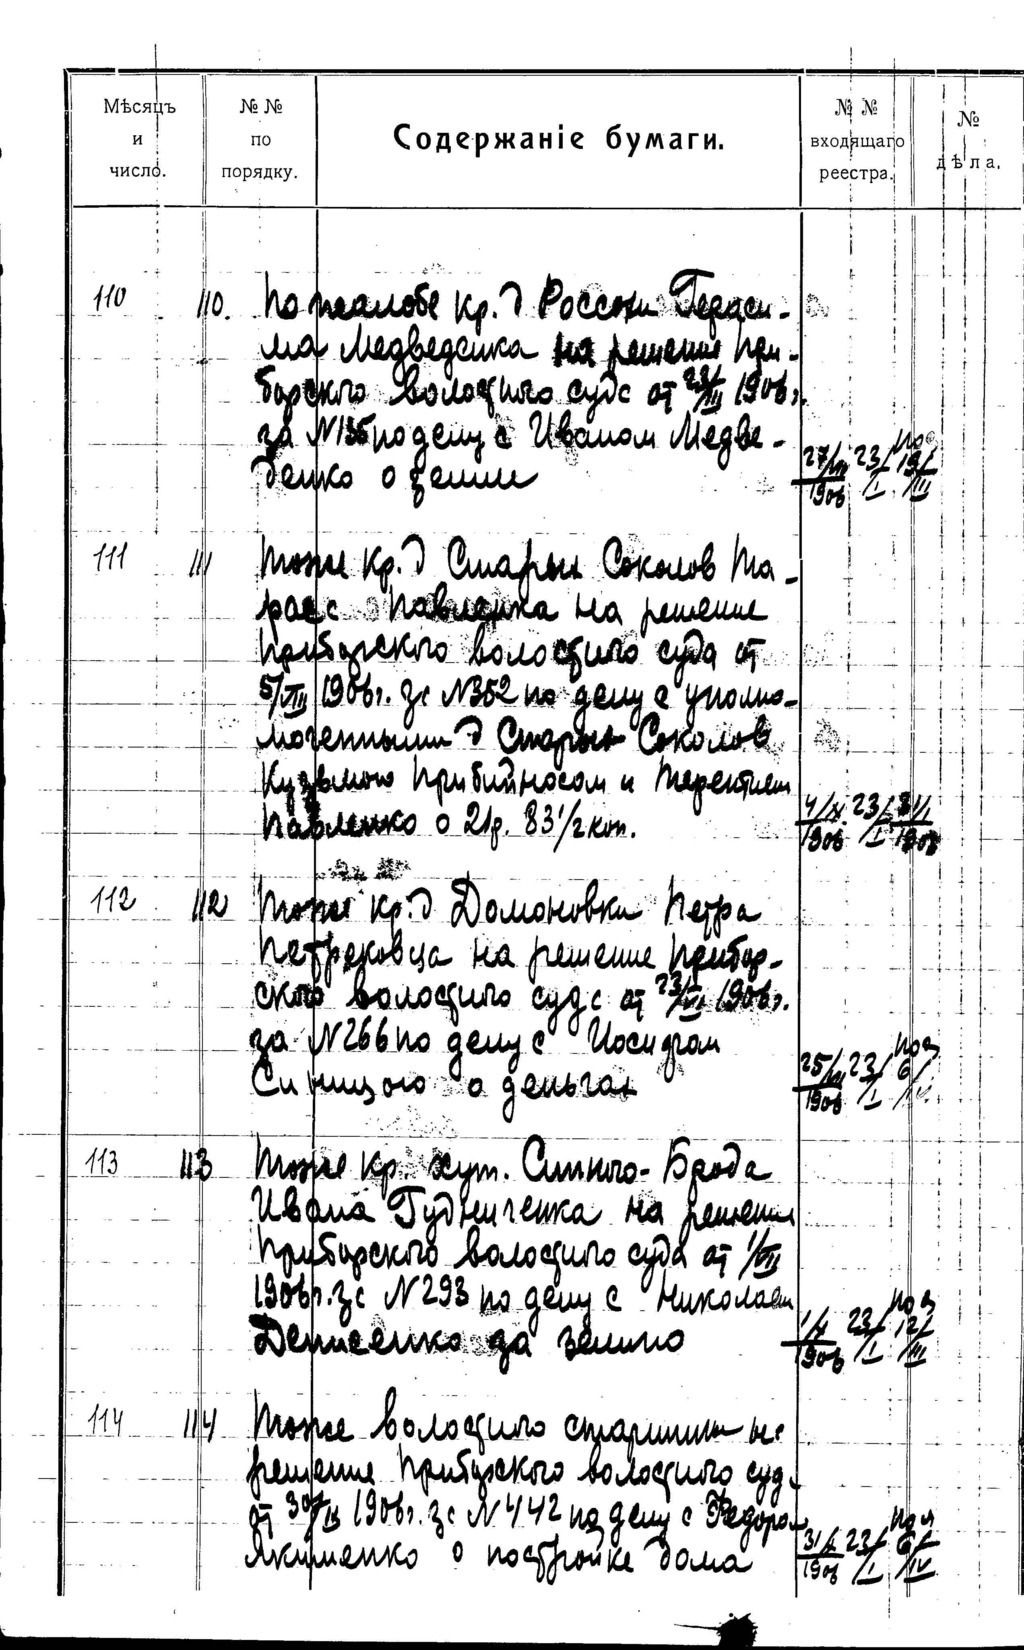 Мѣсяцъ и число.
№ № по порядку.
Содержаніе бумаги.
№ № входящаго реестра.
№ дѣла.
110 110. По жалобе кр. д Россохи Гераси-
ма Медведенка на решение При-
борского волостного суда от 23/VII 1906 г.
за N 135 по делу с Иваном Медве-
денко о земле
27/VII 1906 23/I 19/III
111 111 Тоже кр. д Старых Соколов Та-
раса Павленка на решение
Приборского волостного суда от
5/VII 1906 г. за N 352 по делу с уполно-
моченными д Старых Соколов
Кузьмою Прибийносом и Терентием
Павленко о 21 р. 83 1/2 коп.
4/X 1906 23/I
112 112 Тоже кр. д Домоновки Петра
Петраковца на решение Прибор-
ского волостного суда от 23/VI 1906 г.
за N 266 по делу с Иосифом
Синицою о деньгах
25/VII 1906 23/I 6/IV
113 113 Тоже кр. хут. Синього-Брода
Ивана Гудниченка на решение
Приборского волостного суда от 1/VII
1906 г. за N 293 по делу с Николаем
Денисенко за землю
1/X 1906 23/I 12/III
114 114 Тоже волостного старшины на
решение Приборского волостного суда
от 30/IX 1906 г. за N 442 по делу с Федором
Якименко о постройке дома
31/X 1906 23/I 6/IV